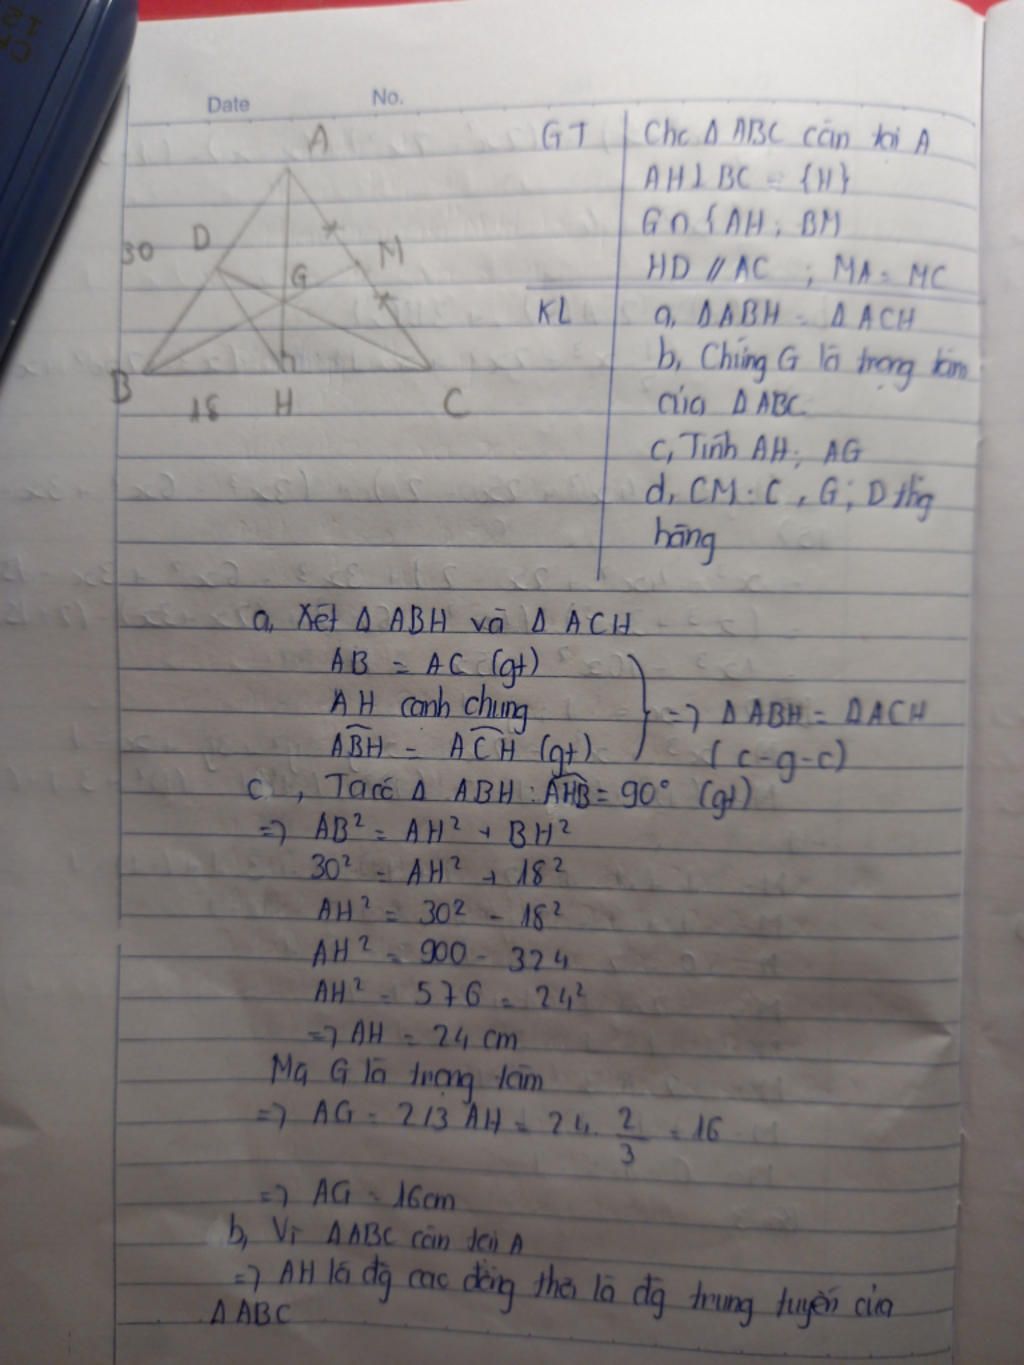 Date No.
A
30 D M
G
B 18 H C
GT Cho Δ ABC cân tại A
AH ⊥ BC = {H}
G ∩ {AH ; BM
HD // AC ; MA = MC
KL a, ΔABH = ΔACH
b, Chứng G là trọng tâm
của ΔABC
c, Tính AH ; AG
d, CM : C , G ; D thg
hàng
a, Xét Δ ABH và Δ ACH
AB = AC (gt)
AH cạnh chung => Δ ABH = ΔACH
ABH = ACH (gt) (c-g-c)
c , Ta có Δ ABH : AHB = 90° (gt)
=> AB² = AH² + BH²
30² = AH² + 18²
AH² = 30² - 18²
AH² = 900 - 324
AH² = 576 = 24²
=> AH = 24 cm
Mà G là trọng tâm
=> AG = 2/3 AH = 24 . 2/3 = 16
=> AG = 16cm
b, Vì ΔABC cân tại A
=> AH là đg cac đồng thời là đg trung tuyến của
ΔABC